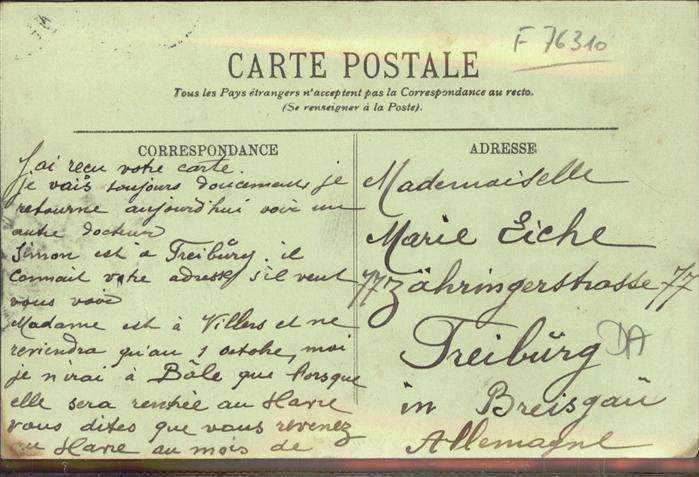 F 76310
CARTE POSTALE
Tous les Pays étrangers n'acceptent pas la Correspondance au recto.
(Se renseigner à la Poste).
CORRESPONDANCE
J'ai reçu votre carte.
je vais toujours doucement je
retourne aujourd'hui voir un
autre docteur
Simon est à Freibŭrg. il
connait votre adresse s'il veut
vous voir
Madame est à Villers et ne
reviendra qu'au 1 octobre, moi
je n'irai à Bâle que lorsque
elle sera rentrée au Havre
vous dites que vous revenez
au Havre au mois de
ADRESSE
Mademoiselle
Marie Eiche
77 Zähringerstrasse 77
Freibŭrg
DA
in Breisgaŭ
Allemagne